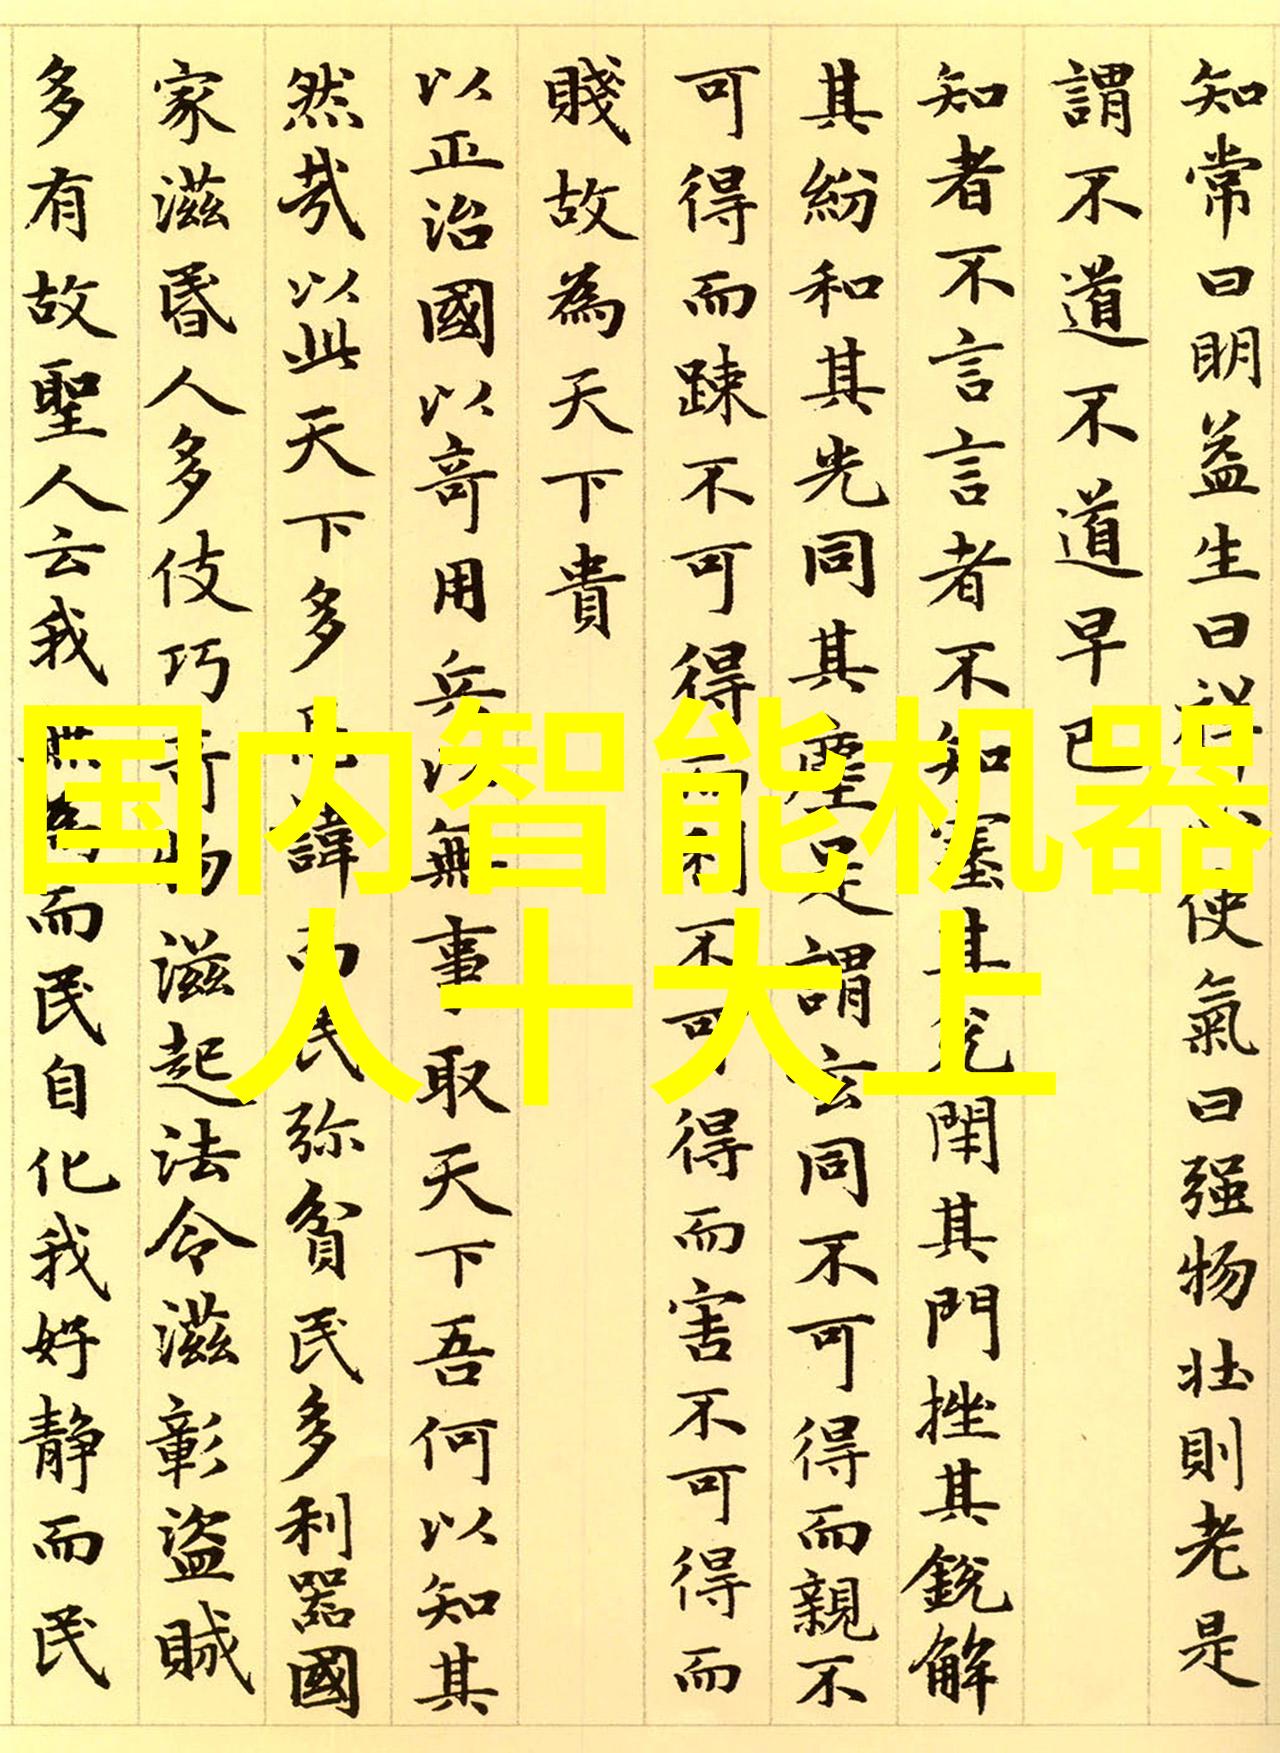 知常曰明益生曰祥心使氣曰强物壯則老是
謂不道不道早已
知者不言言者不知塞其兌閇其門挫其銳解
其紛和其光同其塵是謂玄同不可得而親不
可得而踈不可得而利不可得而害不可得而
賤故為天下貴
以正治國以竒用兵以無事取天下吾何以知其
然哉以此天下多忌諱而民弥貧民多利器國
家滋昬人多伎巧奇物滋起法令滋彰盜賊
多有故聖人云我無為而民自化我好静而民
国内智能机器
人十大上